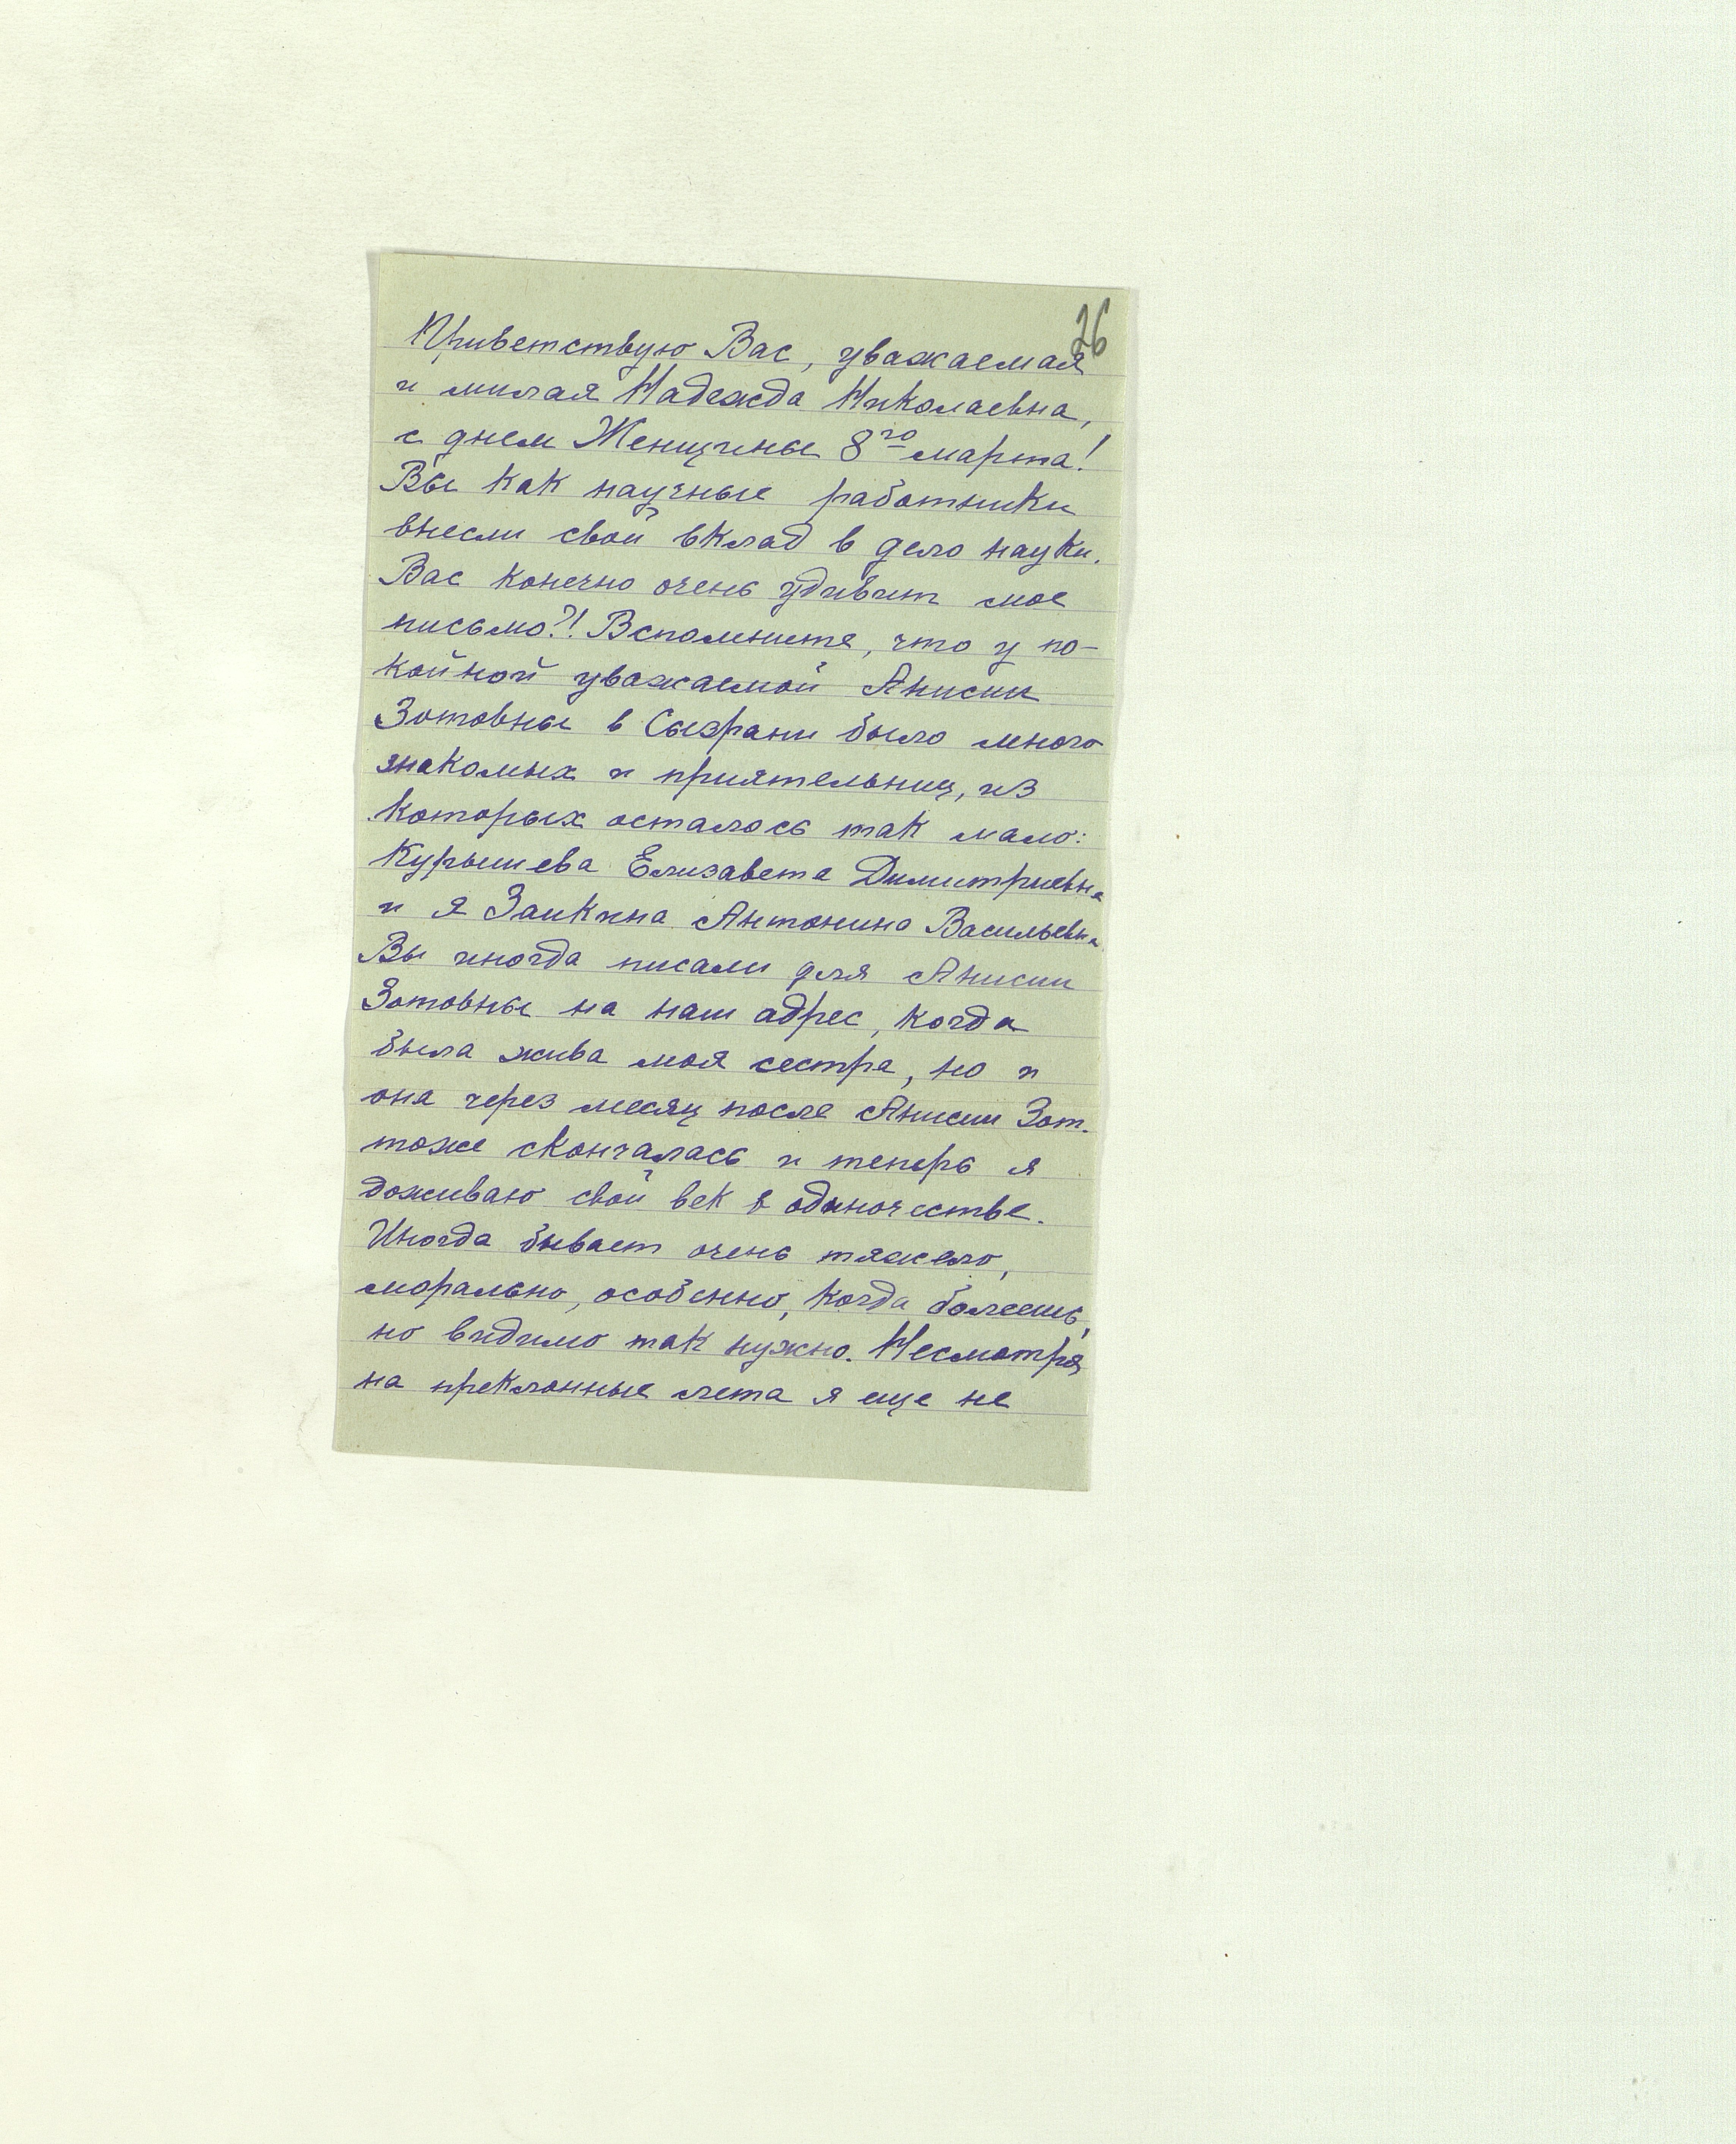 26
Приветствую Вас, уважаемая
и милая Надежда Николаевна,
с днем Женщины 8го марта!
Вы как научные работники
внесли свой вклад в дело науки.
Вас конечно очень удивит мое
письмо?! Вспомните, что у по-
койной уважаемой Анисии
Зотовны в Сызрани было много
знакомых и приятельниц, из
которых осталось так мало:
Курышева Елизавета Димитриевна
и я Заикина Антонина Васильевна
Вы иногда писали для Анисии
Зотовны на наш адрес, когда
была жива моя сестра, но и
она через месяц после Анисии Зот.
тоже скончалась и теперь я
доживаю свой век в одиночестве.
Иногда бывает очень тяжело,
морально, особенно, когда болеешь,
но видимо так нужно. Несмотря
на преклонные лета я еще не